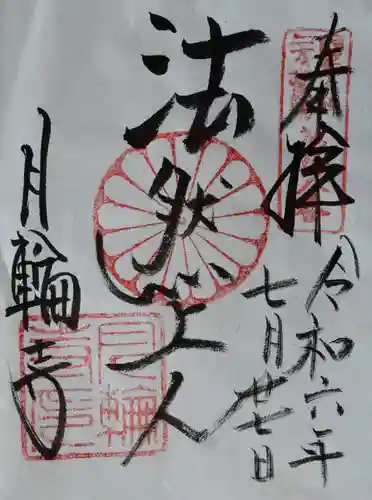 奉拝
令和六年
七月廿七日
法然上人
月輪寺
月輪